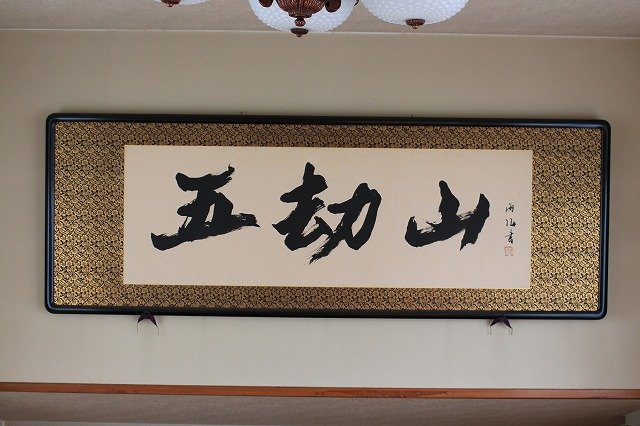 五劫山
書